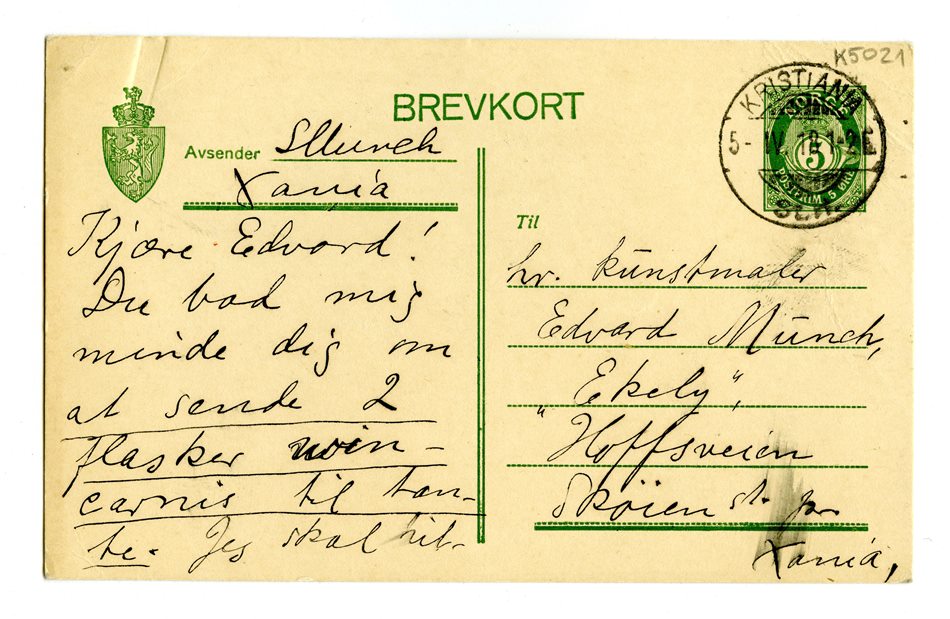 K5021
BREVKORT
KRISTIANIA
5- IV. 18 1-2E
5
POSTFRIM. 5 ØRE
Avsender SMunch
Xania
Kjære Edvard!
Du bad mig
minde dig om
at sende 2
flasker win-
carnis til tan-
te. Jeg skal hil-
Til
hr. kunstmaler
Edvard Munch,
"Ekely",
Hoffsveien
Skøien st. pr.
Xania,